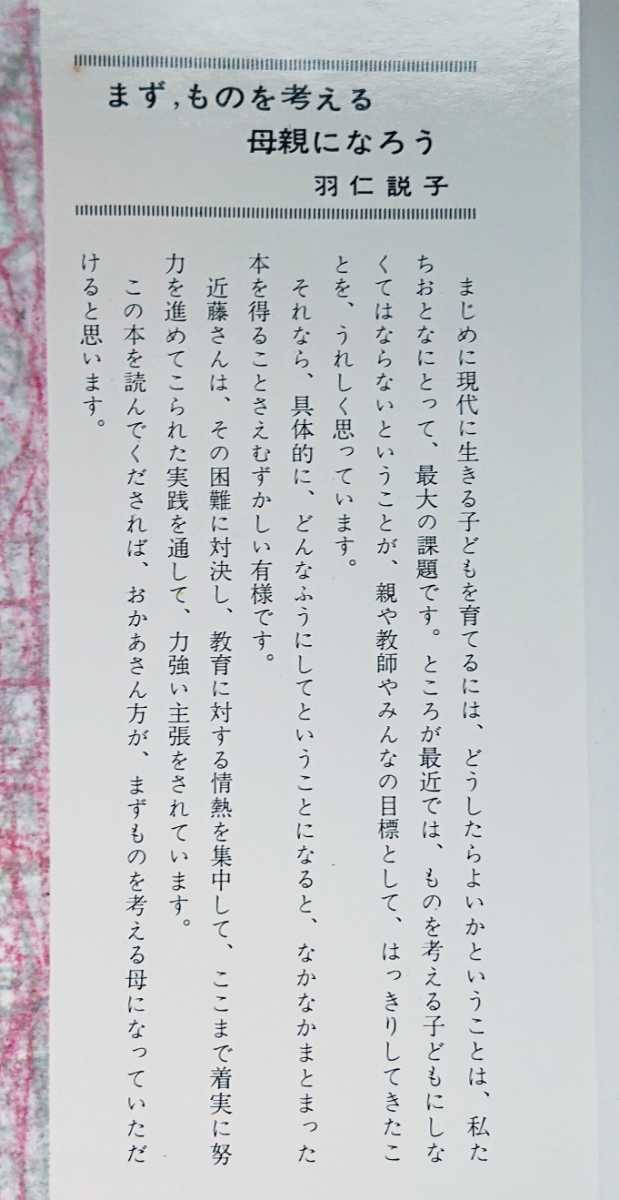 まず,ものを考える
母親になろう
羽仁説子
まじめに現代に生きる子どもを育てるには、どうしたらよいかということは、私た
ちおとなにとって、最大の課題です。ところが最近では、ものを考える子どもにしな
くてはならないということが、親や教師やみんなの目標として、はっきりしてきたこ
とを、うれしく思っています。
それなら、具体的に、どんなふうにしてということになると、なかなかまとまった
本を得ることさえむずかしい有様です。
近藤さんは、その困難に対決し、教育に対する情熱を集中して、ここまで着実に努
力を進めてこられた実践を通して、力強い主張をされています。
この本を読んでくだされば、おかあさん方が、まずものを考える母になっていただ
けると思います。